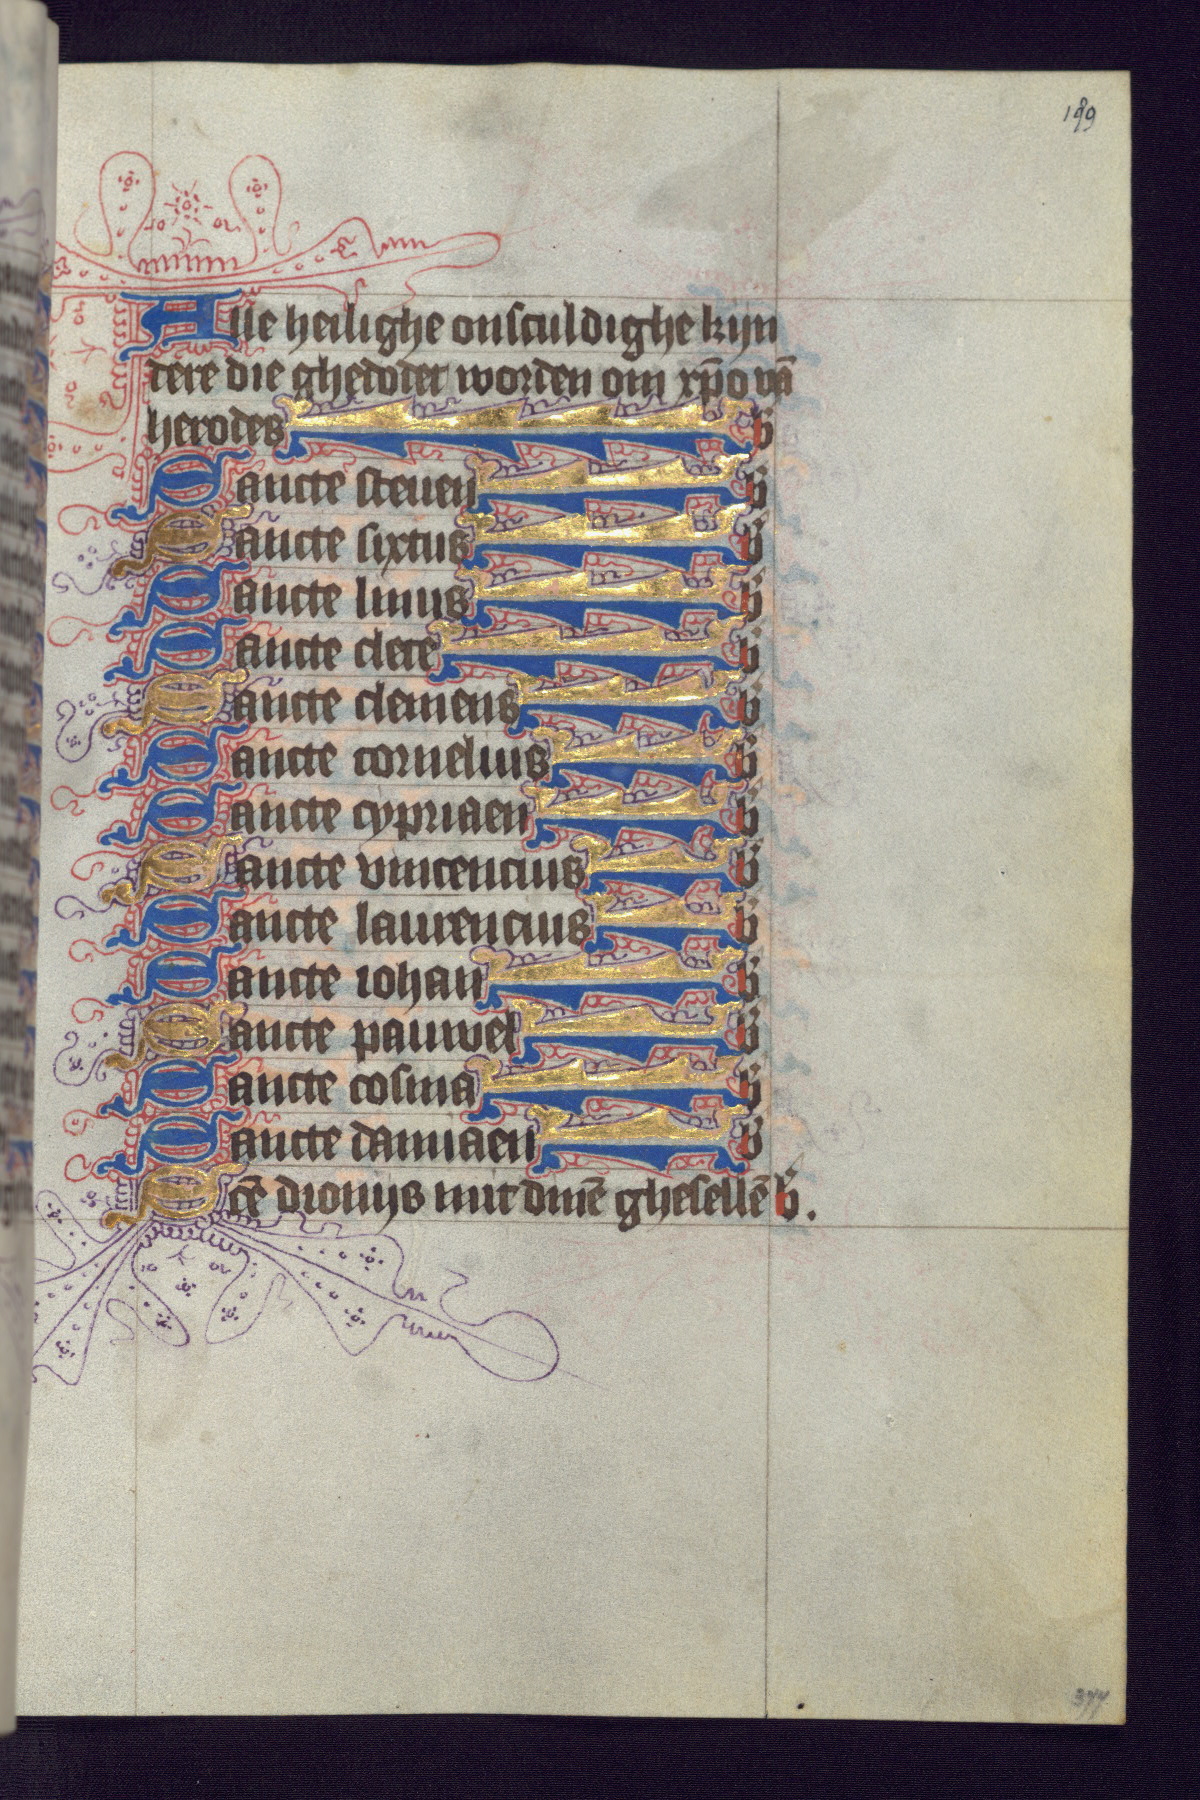 189
Alle heilighe onsculdighe kijn
dere die ghedodet worden om xp̄o vā
herodes b
Sancte steuen b
Sancte sixtus b
Sancte linus b
Sancte clete b
Sancte clemens b
Sancte cornelius b
Sancte cypriaen b
Sancte vincencius b
Sancte laurencius b
Sancte iohan b
Sancte pauwel b
Sancte cosma b
Sancte damiaen b
Scē dionijs mit dinē ghesellē b.
377